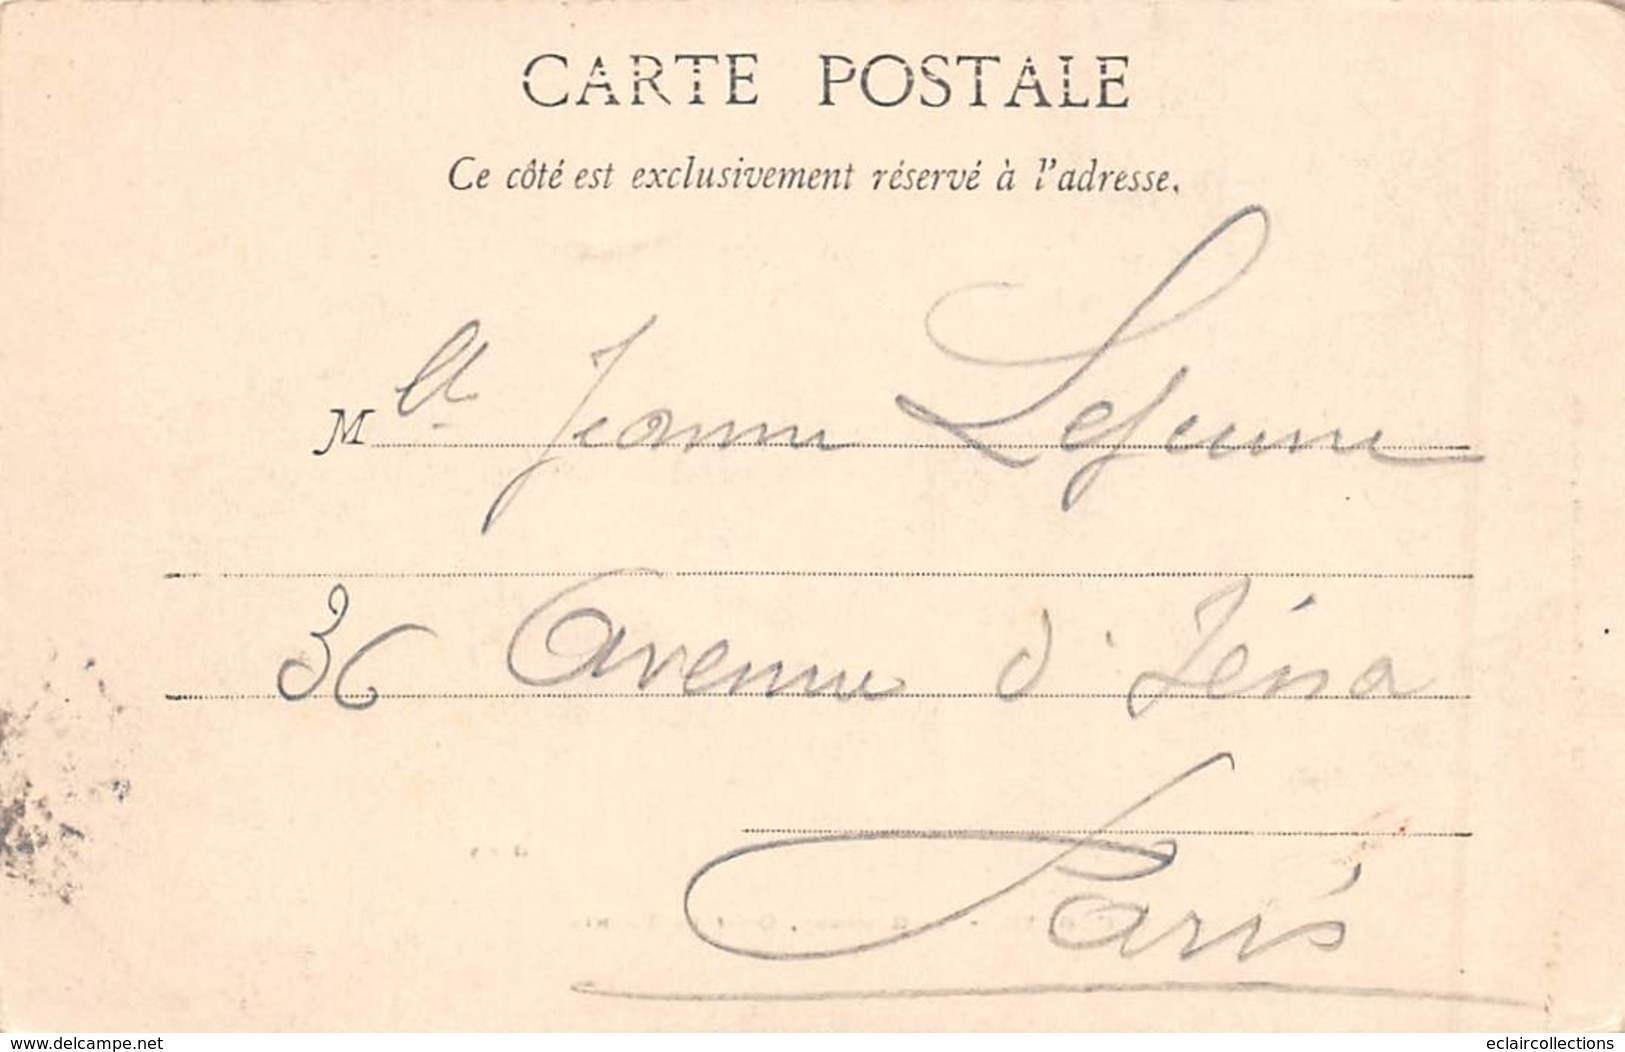 CARTE POSTALE
Ce côté est exclusivement réservé à l'adresse.
Mlle Jeanne Lejeune
36 Avenue d'Iéna
Paris
www.delcampe.net
eclaircollections